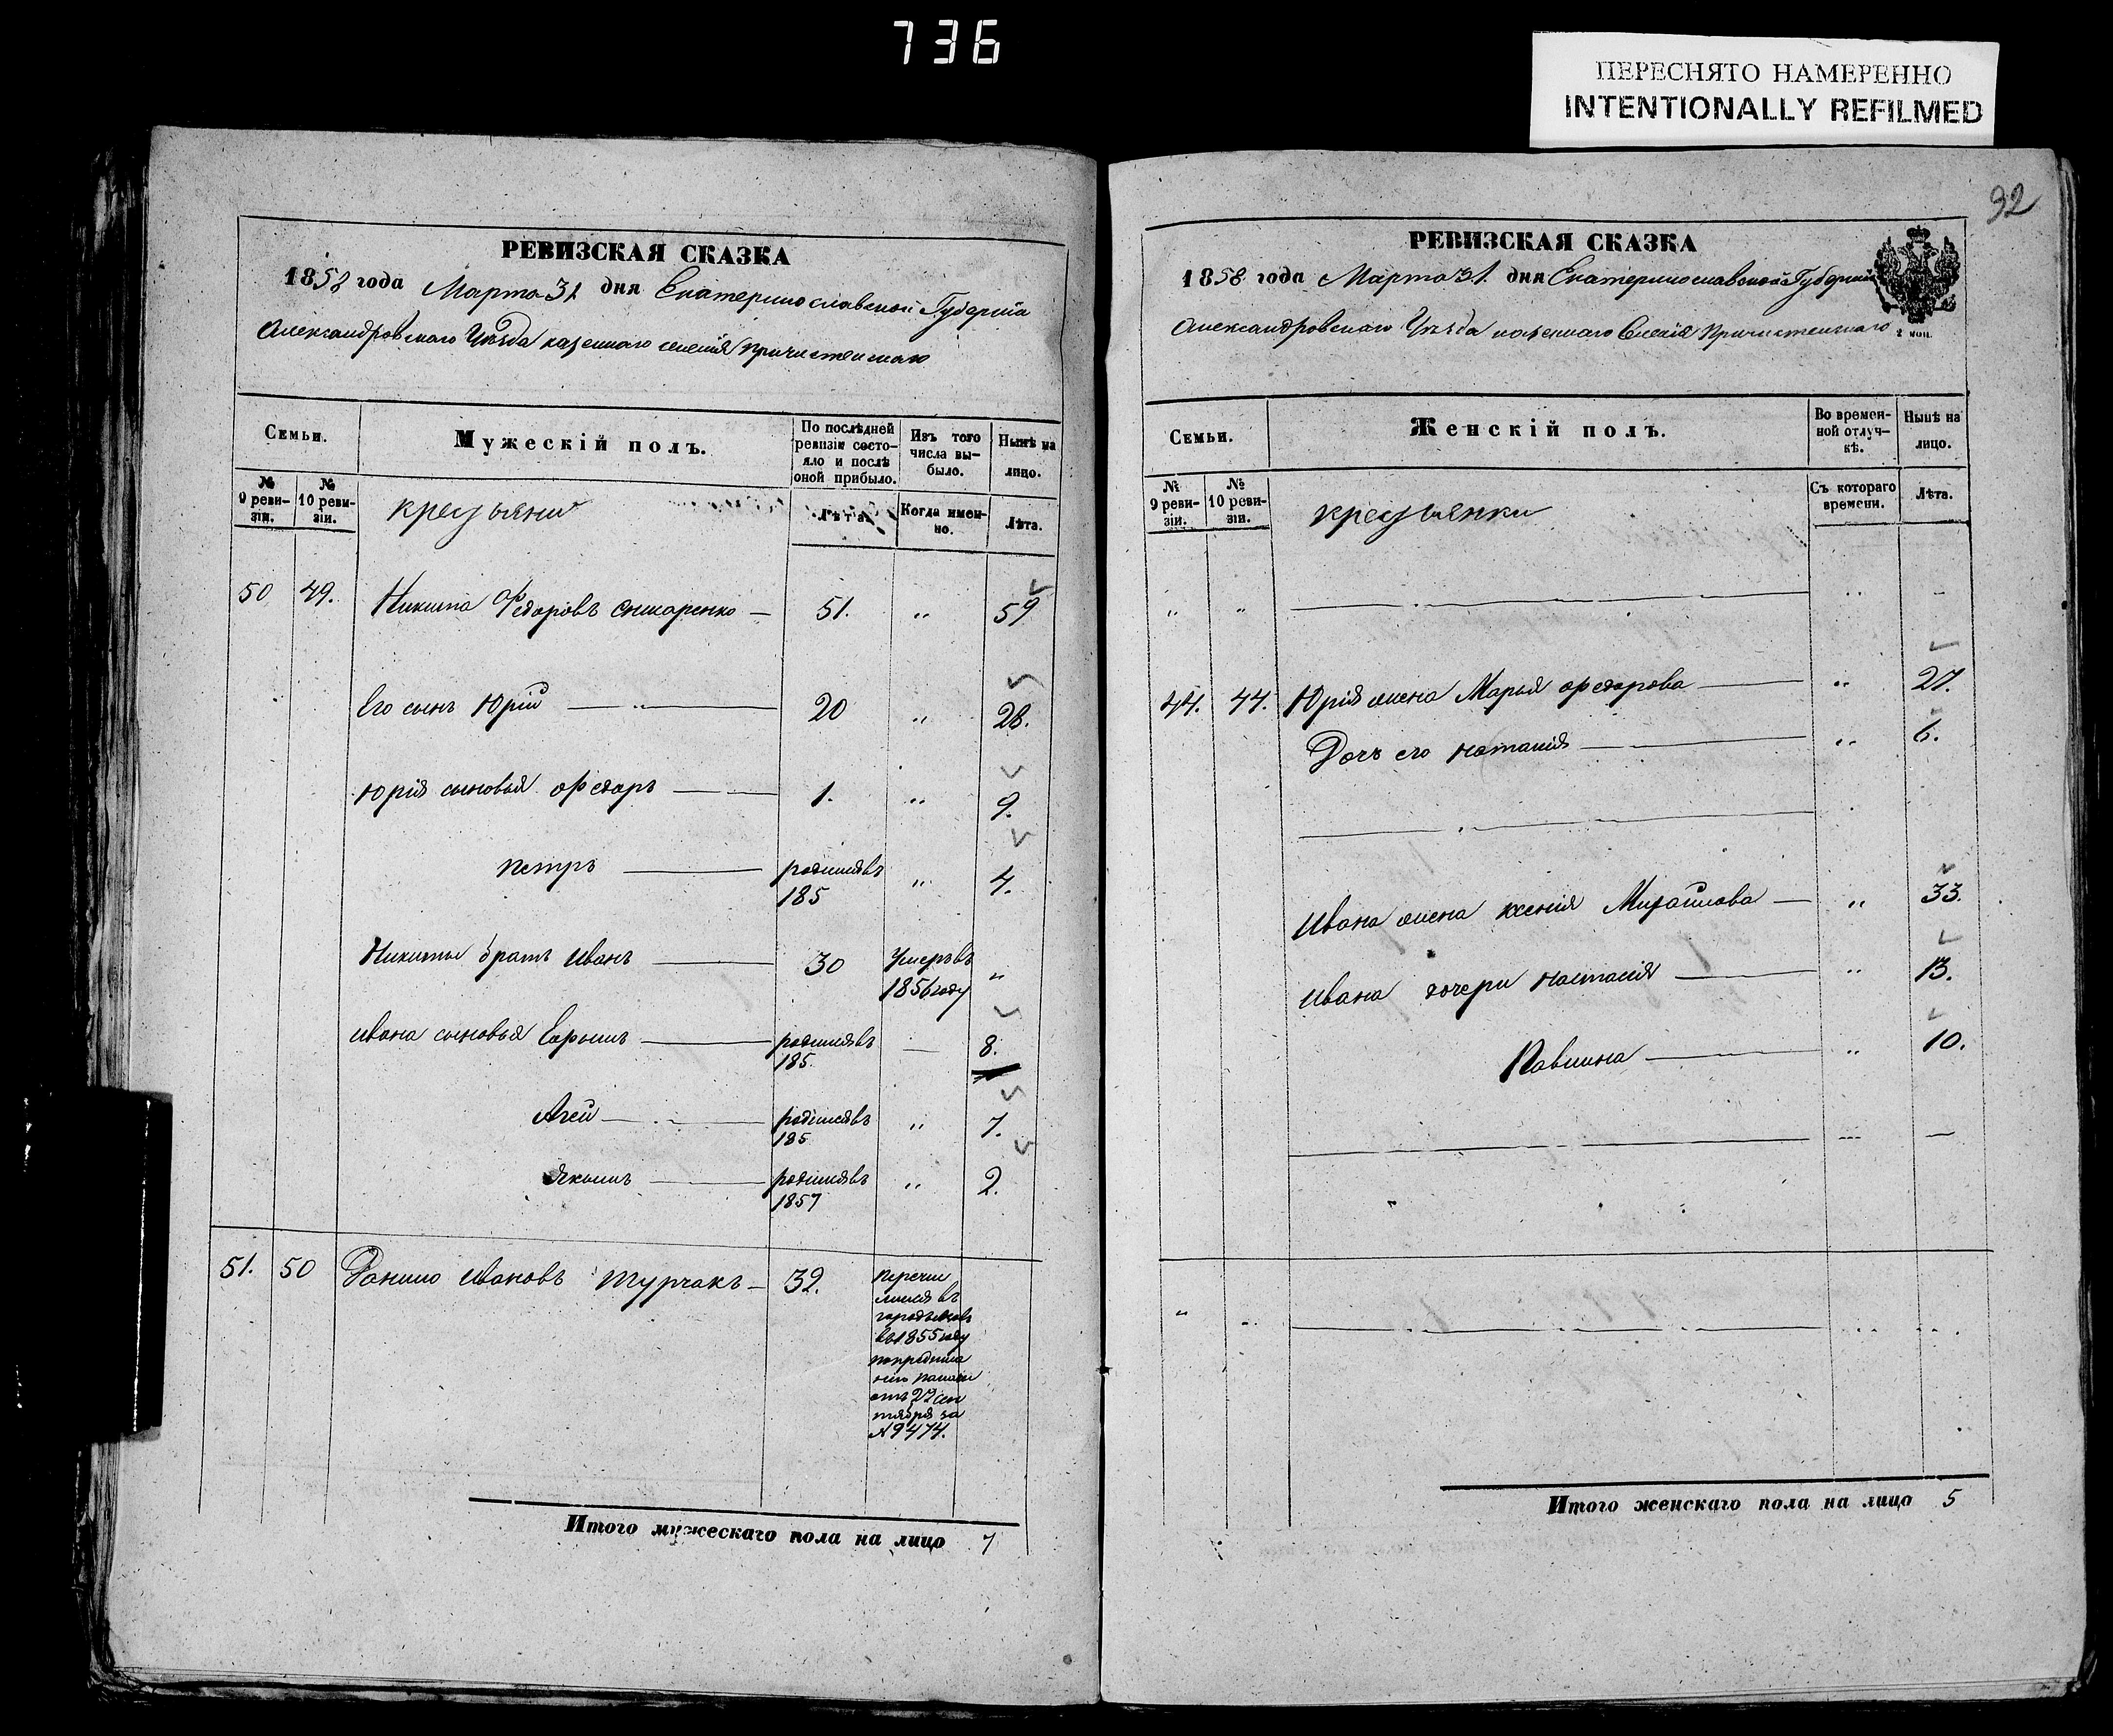 736
ПЕРЕСНЯТО НАМЕРЕННО
INTENTIONALLY REFILMED
РЕВИЗСКАЯ СКАЗКА
1858 года Марта 31 дня Екатеринославской Губерніи
Александровскаго Уѣзда казеннаго селенія Причистенскаго
Семьи.
Мужескій полъ.
По послѣдней ревизіи состояло и послѣ оной прибыло.
Изъ того числа выбыло.
Нынѣ на лицо.
№ 9 ревизіи.
№ 10 ревизіи.
крестьяни
Лѣта.
Когда именно.
Лѣта.
50 49. Никита Федоровъ — 51. „ 59
Его сынъ Юрій — „ — 20 „ 28.
Юрія сыновья Федоръ — 1. „ 9.
Петръ — родился въ 185 „ 4.
Никиты братъ Иванъ — 30 Умеръ въ 1856 году „
Ивана сыновья Ефримъ — родился въ 185 — 8.
Агей — родился въ 185 „ 7.
Якимъ — родился въ 1857 „ 2.
51. 50 Данило Ивановъ Турчакъ — 32.
перечи
слился въ
въ 1855 году
отъ 22 Сен
тября за
№ 9474.
Итого мужескаго пола на лицо 7
92
РЕВИЗСКАЯ СКАЗКА
1858 года Марта 31. дня Екатеринославской Губерніи
Александровскаго Уѣзда казеннаго Селенія Причистенскаго
2 коп.
Семьи.
Женскій полъ.
Во временной отлучкѣ.
Нынѣ на лицо.
№ 9 ревизіи.
№ 10 ревизіи.
крестьянки
Съ котораго времени.
Лѣта.
44. 44. Юрія жена Марья Федорова — „ 27.
Дочь его Наталія — „ 6.
Ивана жена Ксенія Михайлова — „ 33.
Ивана дочери Наталія — „ 13.
Павлина — „ 10.
Итого женскаго пола на лицо 5